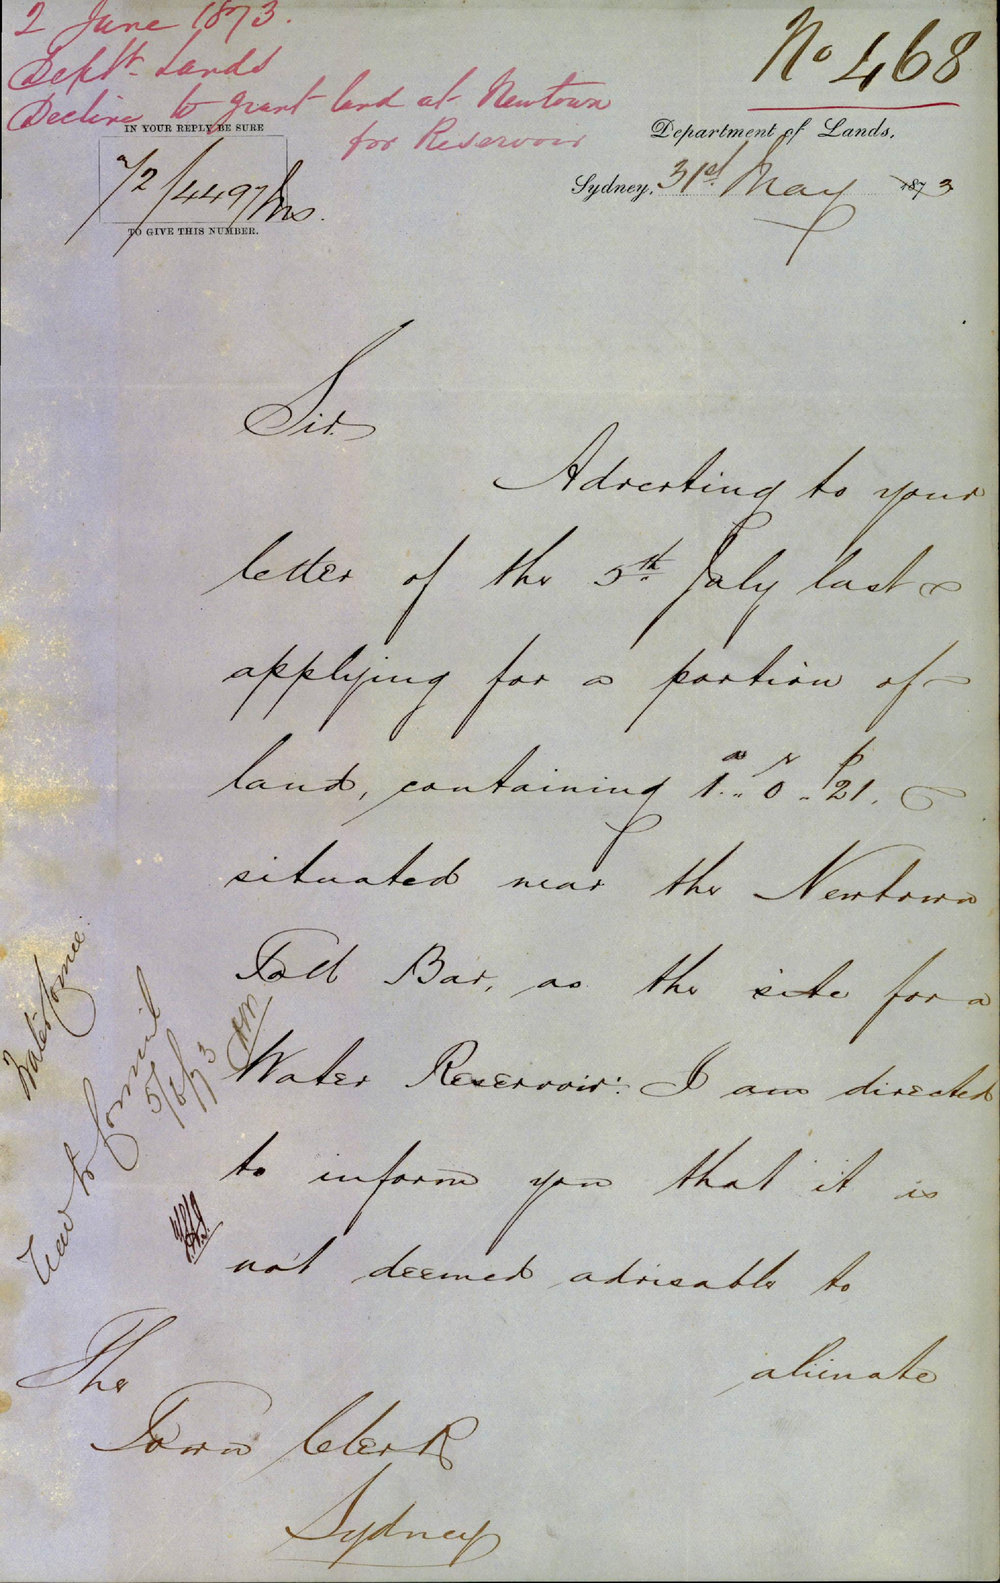 2 June 1873.
Dept. Lands
Decline to grant land at Newtown
for Reservoir
No 468
IN YOUR REPLY BE SURE
72/4497 Ms.
TO GIVE THIS NUMBER.
Department of Lands,
Sydney, 31st May 1873
Sir
Adverting to your
letter of the 5th July last
applying for a portion of
land, containing 1a.. 0r.. 21p.
situated near the Newtown
Toll Bar, as the site for a
Water Reservoir: I am directed
to inform you that it is
not deemed advisable to
alienate
The
Town Clerk
Sydney
Water Comee.
to Council
5/6/73